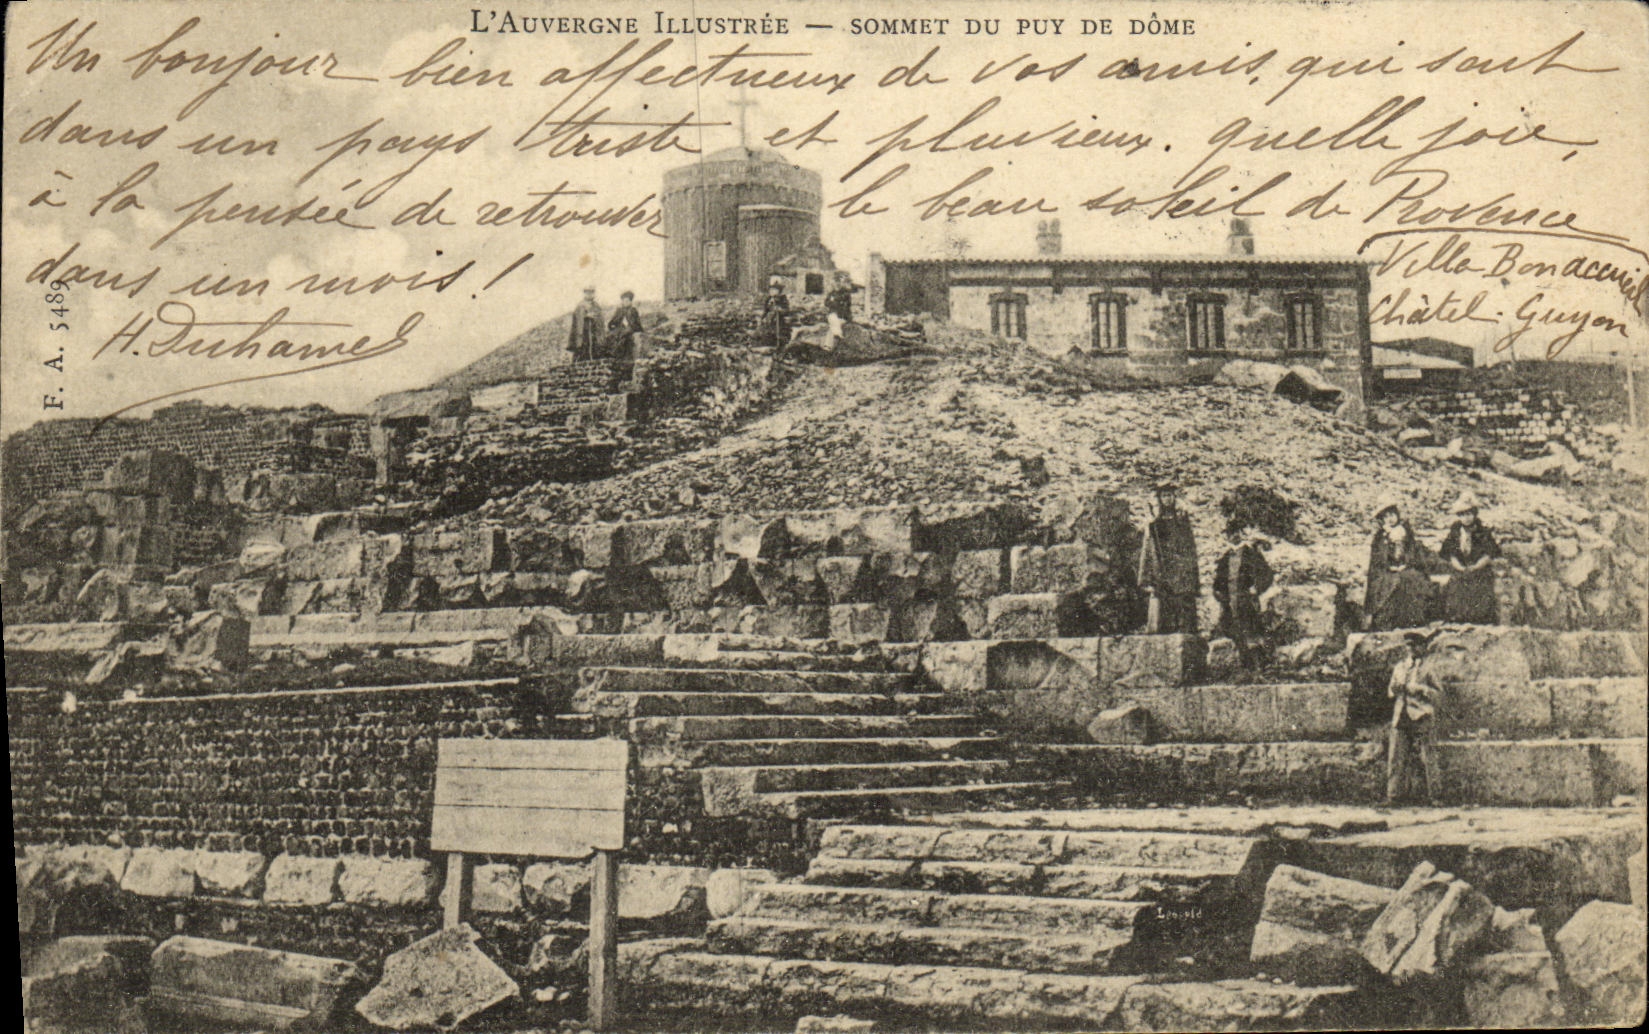 L'AUVERGNE ILLUSTRÉE — SOMMET DU PUY DE DÔME
Un bonjour bien affectueux de vos amis, qui sont
dans un pays triste et pluvieux. Quelle joie,
à la pensée de retrouver le beau soleil de Provence
dans un mois!
H. Duhamel
Villa Bonaccueil
Châtel-Guyon
F. A. 5489
Léopold